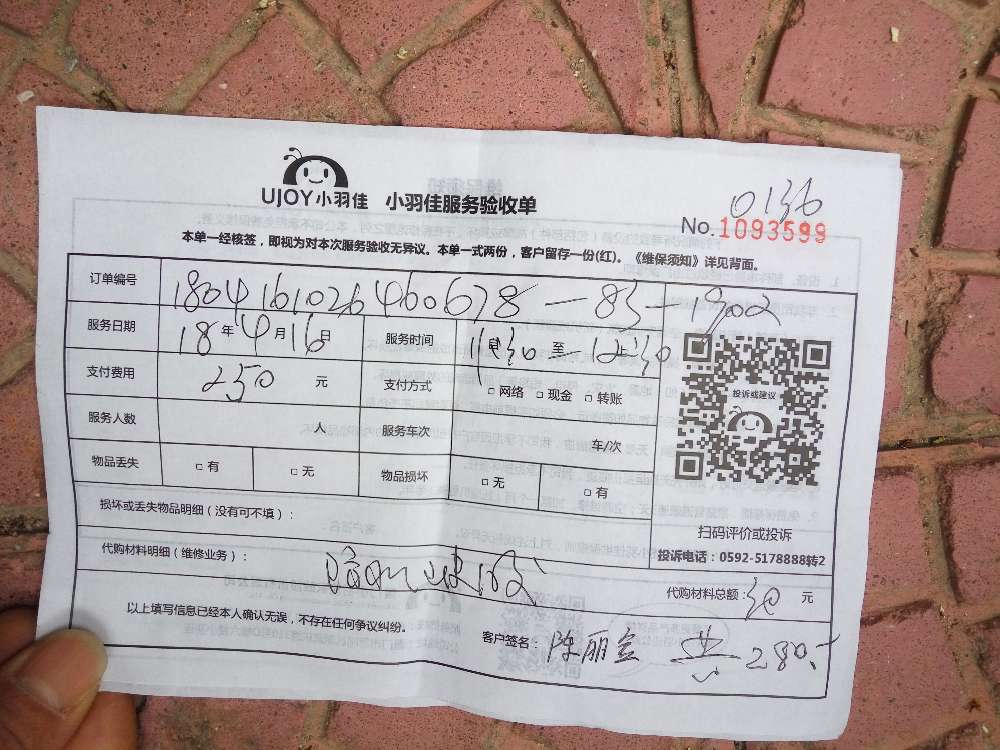 UJOY小羽佳 小羽佳服务验收单
0136
No.1093599
本单一经核签，即视为对本次服务验收无异议。本单一式两份，客户留存一份(红)。《维保须知》详见背面。
订单编号 180416102646067​8-83-1902
服务日期 18年4月16日 服务时间 11:30至12:30
支付费用 250 元 支付方式 □网络 □现金 □转账
投诉或建议
服务人数 人 服务车次 车/次
物品丢失 □有 □无 物品损坏 □无 □有
损坏或丢失物品明细（没有可不填）：
扫码评价或投诉
代购材料明细（维修业务）：
投诉电话：0592-5178888转2
代购材料总额：30 元
以上填写信息已经本人确认无误，不存在任何争议纠纷。
客户签名：陈丽金 共280.-